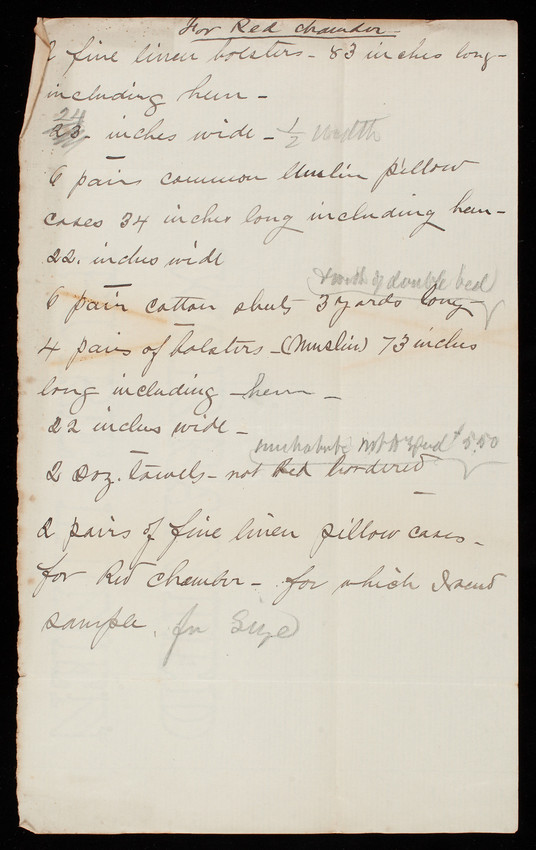 For Red chamber
2 fine linen bolsters - 83 inches long -
including hem -
24
23 inches wide - 1/2 width
6 pairs common Muslin pillow
cases 34 inches long including hem -
22. inches wide
width of double bed
6 pair cotton sheets 3 yards long -
4 pairs of bolsters - (Muslin) 73 inches
long including - hem -
22 inches wide -
not to 5.50
2 Doz. towels - not Red bordered
2 pairs of fine linen pillow cases -
for Red Chamber - for which I send
sample. for Size